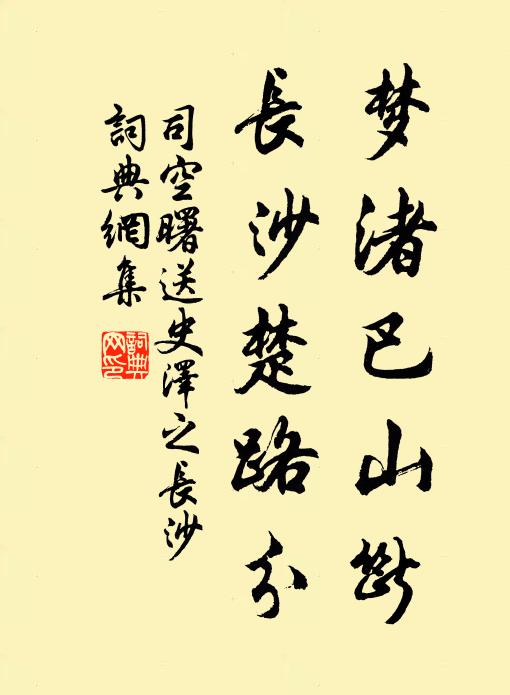 梦渚巴山断
長沙楚路分
司空曙送史澤之長沙
詞典網集
詞典网印